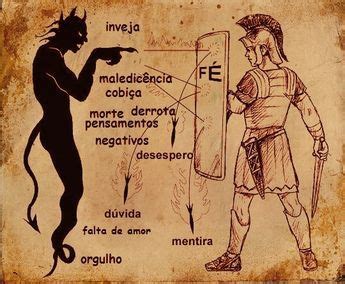 inveja
FÉ
maledicência
cobiça
morte derrota
pensamentos
negativos
desespero
dúvida
falta de amor
mentira
orgulho